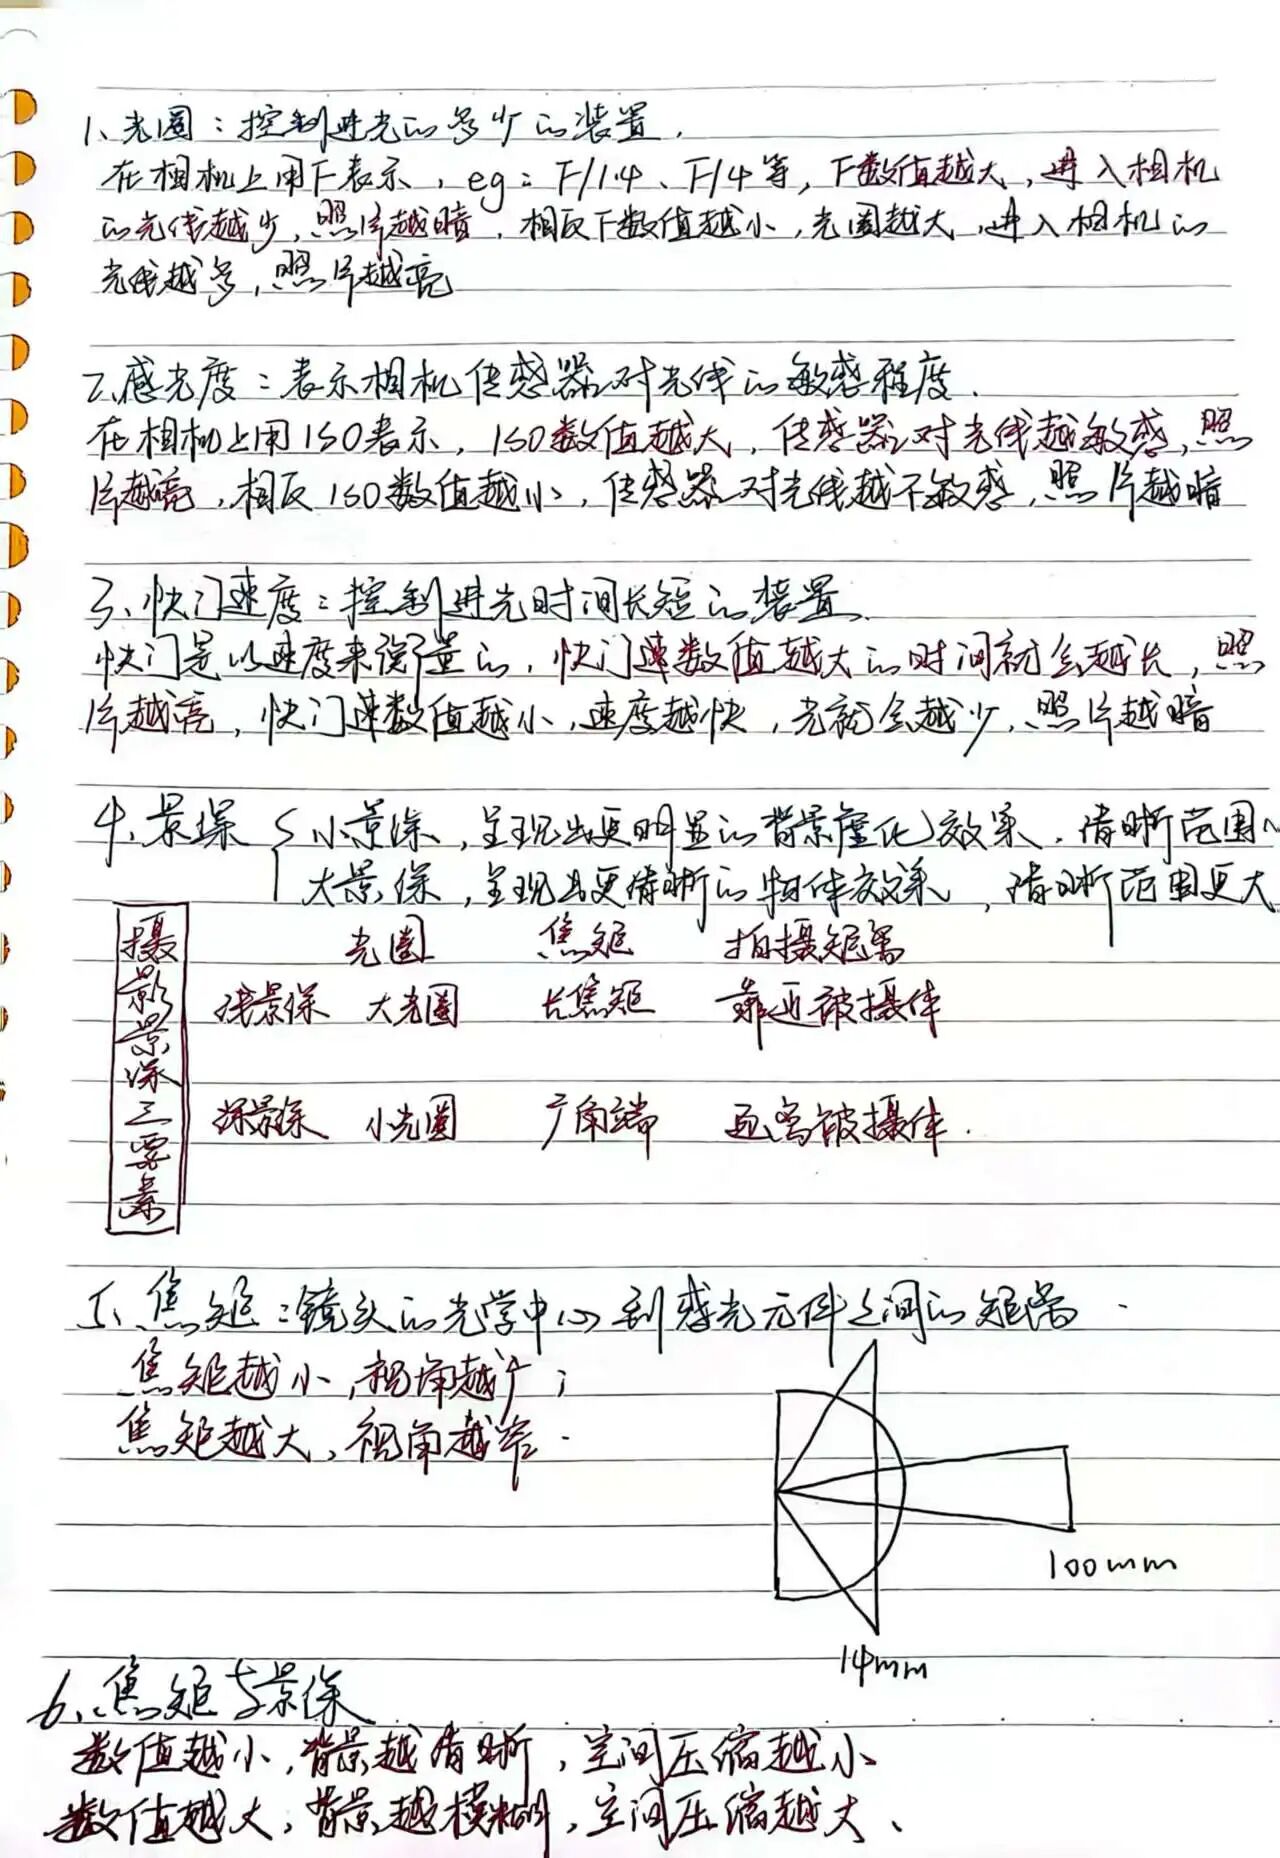 1、光圈：控制进光的多少的装置.
在相机上用F表示，eg：F/1.4、F/4等，F数值越大，进入相机
的光线越少，照片越暗，相反F数值越小，光圈越大，进入相机的
光线越多，照片越亮
2、感光度：表示相机传感器对光线的敏感程度.
在相机上用ISO表示，ISO数值越大，传感器对光线越敏感，照
片越亮，相反ISO数值越小，传感器对光线越不敏感，照片越暗
3、快门速度：控制进光时间长短的装置.
快门是以速度来衡量的，快门速数值越大的时间就会越长，照
片越亮，快门速数值越小，速度越快，光就会越少，照片越暗
4、景深 { 小景深，呈现出更明显的背景虚化效果，清晰范围小
大景深，呈现出更清晰的物体效果，清晰范围更大
摄影景深三要素
光圈 焦矩 拍摄矩离
浅景深 大光圈 长焦矩 靠近被摄体
深景深 小光圈 广角端 远离被摄体.
5、焦矩：镜头的光学中心到感光元件之间的矩离.
焦矩越小，视角越广；
焦矩越大，视角越窄.
100mm
14mm
6、焦矩与景深
数值越小，背景越清晰，空间压缩越小
数值越大，背景越模糊，空间压缩越大、